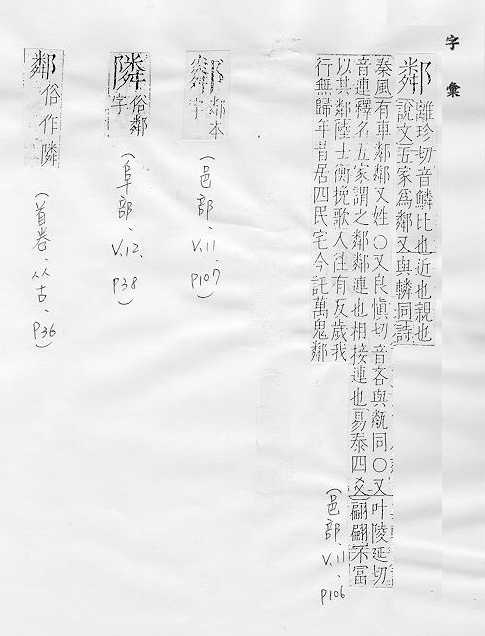 字彙
鄰
離珍切音鱗比也近也親也
說文五家為鄰又與轔同詩
秦風有車鄰鄰又姓○又良慎切音吝與甐同○又叶陵延切
音連釋名五家謂之鄰鄰連也相接連也易泰四爻翩翩不富
以其鄰陸士衡挽歌人往有反歲我
行無歸年昔居四民宅今託萬鬼鄰
(邑部、V.11、P106)
鄰本
字
(邑部、V.11、P107)
隣
俗鄰
字
(阜部、V.12、P38)
鄰俗作隣
(首卷、从古、P36)